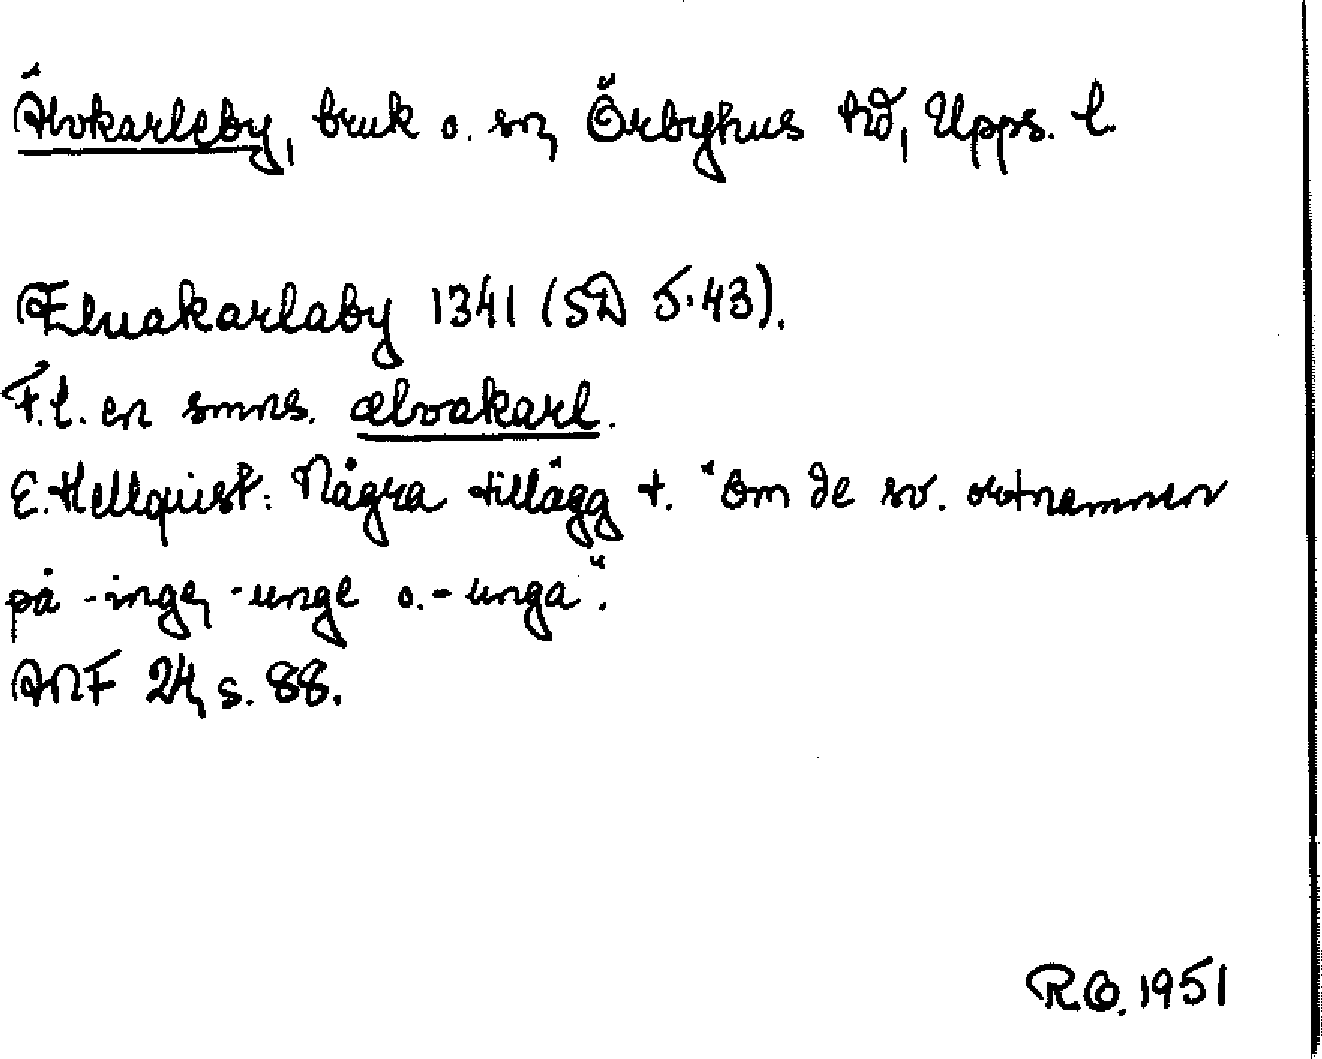 Älvkarleby, bruk o. sn, Örbyhus hd, Upps. l.
Ælvakarlaby 1341 (SD 5.43).
F.l. en smns. ælvakarl.
E. Hellquist: Några tillägg t. "Om de sv. ortnamnen
på -inge, -unge o. -unga".
ANF 24, s. 88.
R.O. 1951